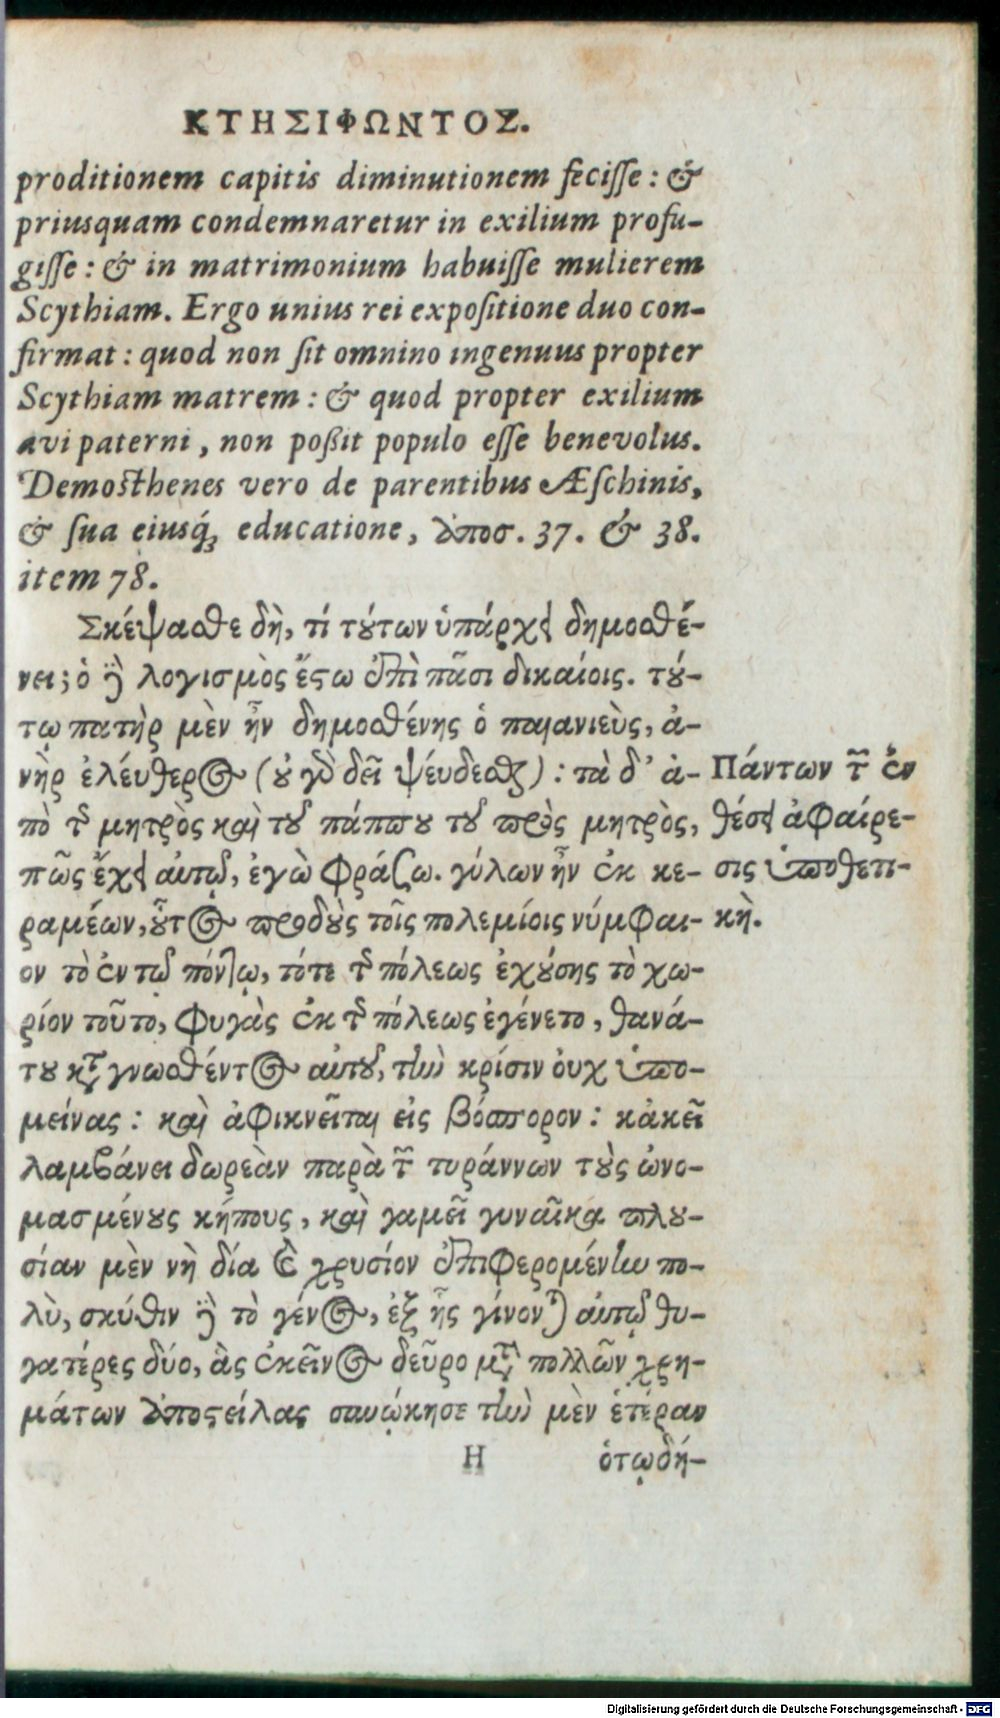 ΚΤΗΣΙΦΩΝΤΟΣ.
proditionem capitis diminutionem fecisse: &
priusquam condemnaretur in exilium profu-
gisse: & in matrimonium habuisse mulierem
Scythiam. Ergo unius rei expositione duo con-
firmat: quod non sit omnino ingenuus propter
Scythiam matrem: & quod propter exilium
avi paterni, non poßit populo esse benevolus.
Demosthenes vero de parentibus Æschinis,
& sua eiusq́; educatione, ἀποσ. 37. & 38.
item 78.
Σκέψασθε δὴ, τί τούτων ὑπάρχει δημοσθέ-
νει; ὁ δὲ λογισμὸς ἔστω ἐπὶ πᾶσι δικαίοις. τού-
τῳ πατὴρ μὲν ἦν δημοσθένης ὁ παιανιεὺς, ἀ-
νὴρ ἐλέυθερος (οὐ γὰρ δεῖ ψέυδεσθαι): τὰ δ’ ἀ-
πὸ τῆς μητρὸς καὶ τοῦ πάππου τοῦ πρὸς μητρὸς,
πῶς ἔχει αὐτῷ, ἐγὼ φράζω. γύλων ἦν ἐκ κε-
ραμέων, οὗτος προδοὺς τοῖς πολεμίοις νύμφαι-
ον τὸ ἐν τῷ πόντῳ, τότε τῆς πόλεως ἐχούσης τὸ χω-
ρίον τοῦτο, φυγὰς ἐκ τῆς πόλεως ἐγένετο, θανά-
του καταγνωσθέντος αὐτοῦ, τὴν κρίσιν οὐχ ὑπο-
μείνας: καὶ ἀφικνεῖται εἰς βόσπορον: κἀκεῖ
λαμβάνει δωρεὰν παρὰ τῶν τυράννων τοὺς ὠνο-
μασμένους κήπους, καὶ γαμεῖ γυναῖκα πλου-
σίαν μὲν νὴ δία καὶ χρυσίον ἐπιφερομένην πο-
λὺ, σκύθιν δὲ τὸ γένος, ἐξ ἧς γίνονται αὐτῷ θυ-
γατέρες δύο, ἃς ἐκεῖνος δεῦρο μετὰ πολλῶν χρη-
μάτων ἀποστείλας συνῴκησε τὴν μὲν ἑτέραν
Η ὁτῳδή-
Πάντων τῶν ἐν
θέσει ἀφαίρε-
σις ὑποθετι-
κὴ.
Digitalisierung gefördert durch die Deutsche Forschungsgemeinschaft - DFG